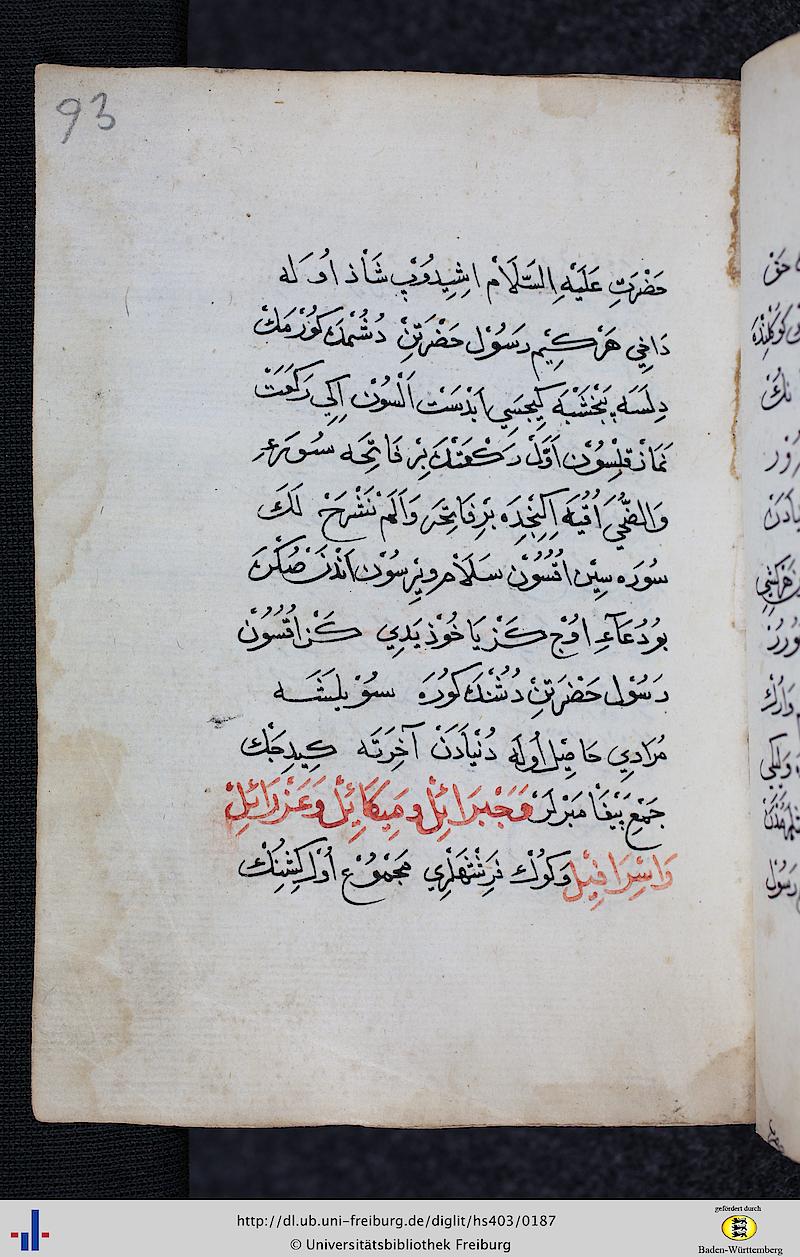 93
حَضْرَتِ عَلَيْهِ السَّلَامْ اشِيدُوبْ شَاذْ اُولَه
دَاخِي هَرْ كِيمْ رَسُولْ حَضْرَتِنْ دُشُمْدَكُورْمَكْ
دِلَسَه پَنْجْشَنْبَه كِيجَسِي اَبْدَسَتْ اَلْسُونْ اِكِي رَكْعَتْ
نَمَازْ قِلْسُونْ اَوَّلْ رَكْعَتْدَ بِرْ فَاتِحَه سُورَءِ
وَالضُّحَى اُقُيَه اِكِنْجِدَه بِرْ فَاتِحَه وَاَلَمْ نَشْرَحْ لَكَ
سُورَه سِينْ اقُسُونْ سَلَامْ وِيرْسُونْ اَنْدَنْ صُكْرَ
بُو دُعَآءِ اوُجْ كَزْ يَاخُوذْ يَدِي كَزْ اقُسُونْ
رَسُولْ حَضْرَتِنْ دُشُنْدَكُورَه سُوْيلَشَه
مُرَادِي حَاصِلْ اُولَه دُنْيَادَنْ آخِرَتَه كِيدِجَكْ
جَمْعِ پَيْغَامْبَرْلَرْ وَجَبْرَائِلْ وَمِيكَائِلْ وَعَزْرَائِلْ
وَاسْرَافِيلْ وَكُوكْ فَرِشْتَهلَرِي مَجْمُوعْ اُولْ كِشِنِكْ
http://dl.ub.uni-freiburg.de/diglit/hs403/0187
© Universitätsbibliothek Freiburg
gefördert durch
Baden-Württemberg